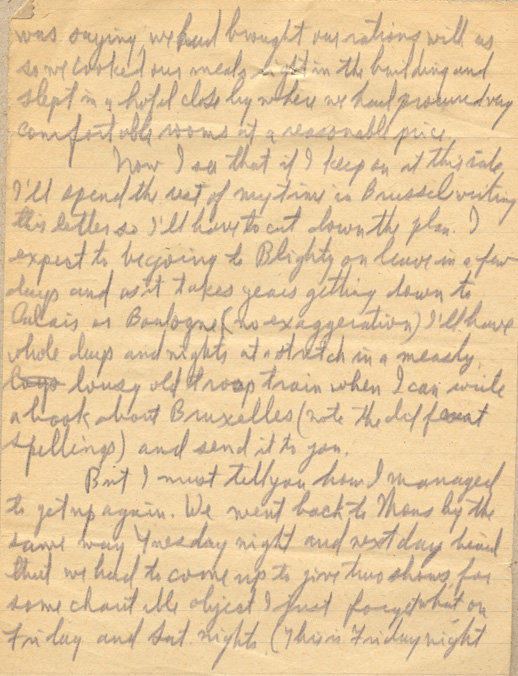 was saying we had brought our rations with us
so we cooked our meals in the building and
slept in a hotel close by where we had procured very
comfortable rooms at a reasonable price.
Now I see that if I keep on at this rate,
I'll spend the rest of my time in Brussel writing
this letter so I'll have to cut down the plan. I
expect to be going to Blighty on leave in a few
days and as it takes years getting down to
Calais or Boulogne (no exaggeration) I'll have
whole days and nights at a stretch in a measly
lousy old troop train when I can write
a book about Bruxelles (note the different
spellings) and send it to you.
But I must tell you how I managed
to get up again. We went back to Mons by the
same way Tuesday night and next day heard
that we had to come up to give two shows for
some charitable object I just forget what on
Friday and Sat. nights. (This is Friday night